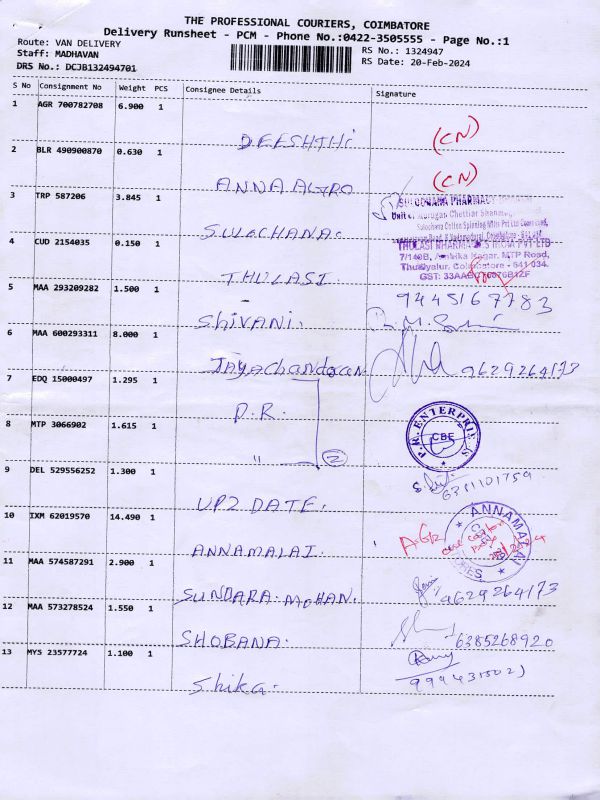 THE PROFESSIONAL COURIERS, COIMBATORE
Delivery Runsheet - PCM - Phone No.:0422-3505555 - Page No.:1
Route: VAN DELIVERY
Staff: MADHAVAN
DRS No.: DCJB132494701
RS No.: 1324947
RS Date: 20-Feb-2024
S No Consignment No Weight PCS Consignee Details Signature
1 AGR 700782708 6.900 1
DEESHTHI (CN)
2 BLR 490900870 0.630 1
ANNA ALYRO (CN)
3 TRP 587206 3.845 1
SULOCHANA PHARMACY
SULOCHANA.
4 CUD 2154035 0.150 1
THULASI PHARMACIES INDIA PVT LTD
7/140B, Ambika Nagar, MTP Road,
Thudiyalur, Coimbatore - 641 034.
THULASI
5 MAA 293209282 1.500 1
9445167783
Shivani.
6 MAA 600293311 8.000 1
Jayachandran 9629264173
7 EDQ 15000497 1.295 1
P.R.
P.R. ENTERPRIESS
CBE
8 MTP 3066902 1.615 1
" 2
9 DEL 529556252 1.300 1
6381101759
UP2 DATE.
10 IXM 62019570 14.490 1
ANNAMALAI
STORES
ANNAMALAI.
11 MAA 574587291 2.900 1
SUNDARA MOHAN. 9629264173
12 MAA 573278524 1.550 1
SHOBANA. 6385268920
13 MYS 23577724 1.100 1
Shika.